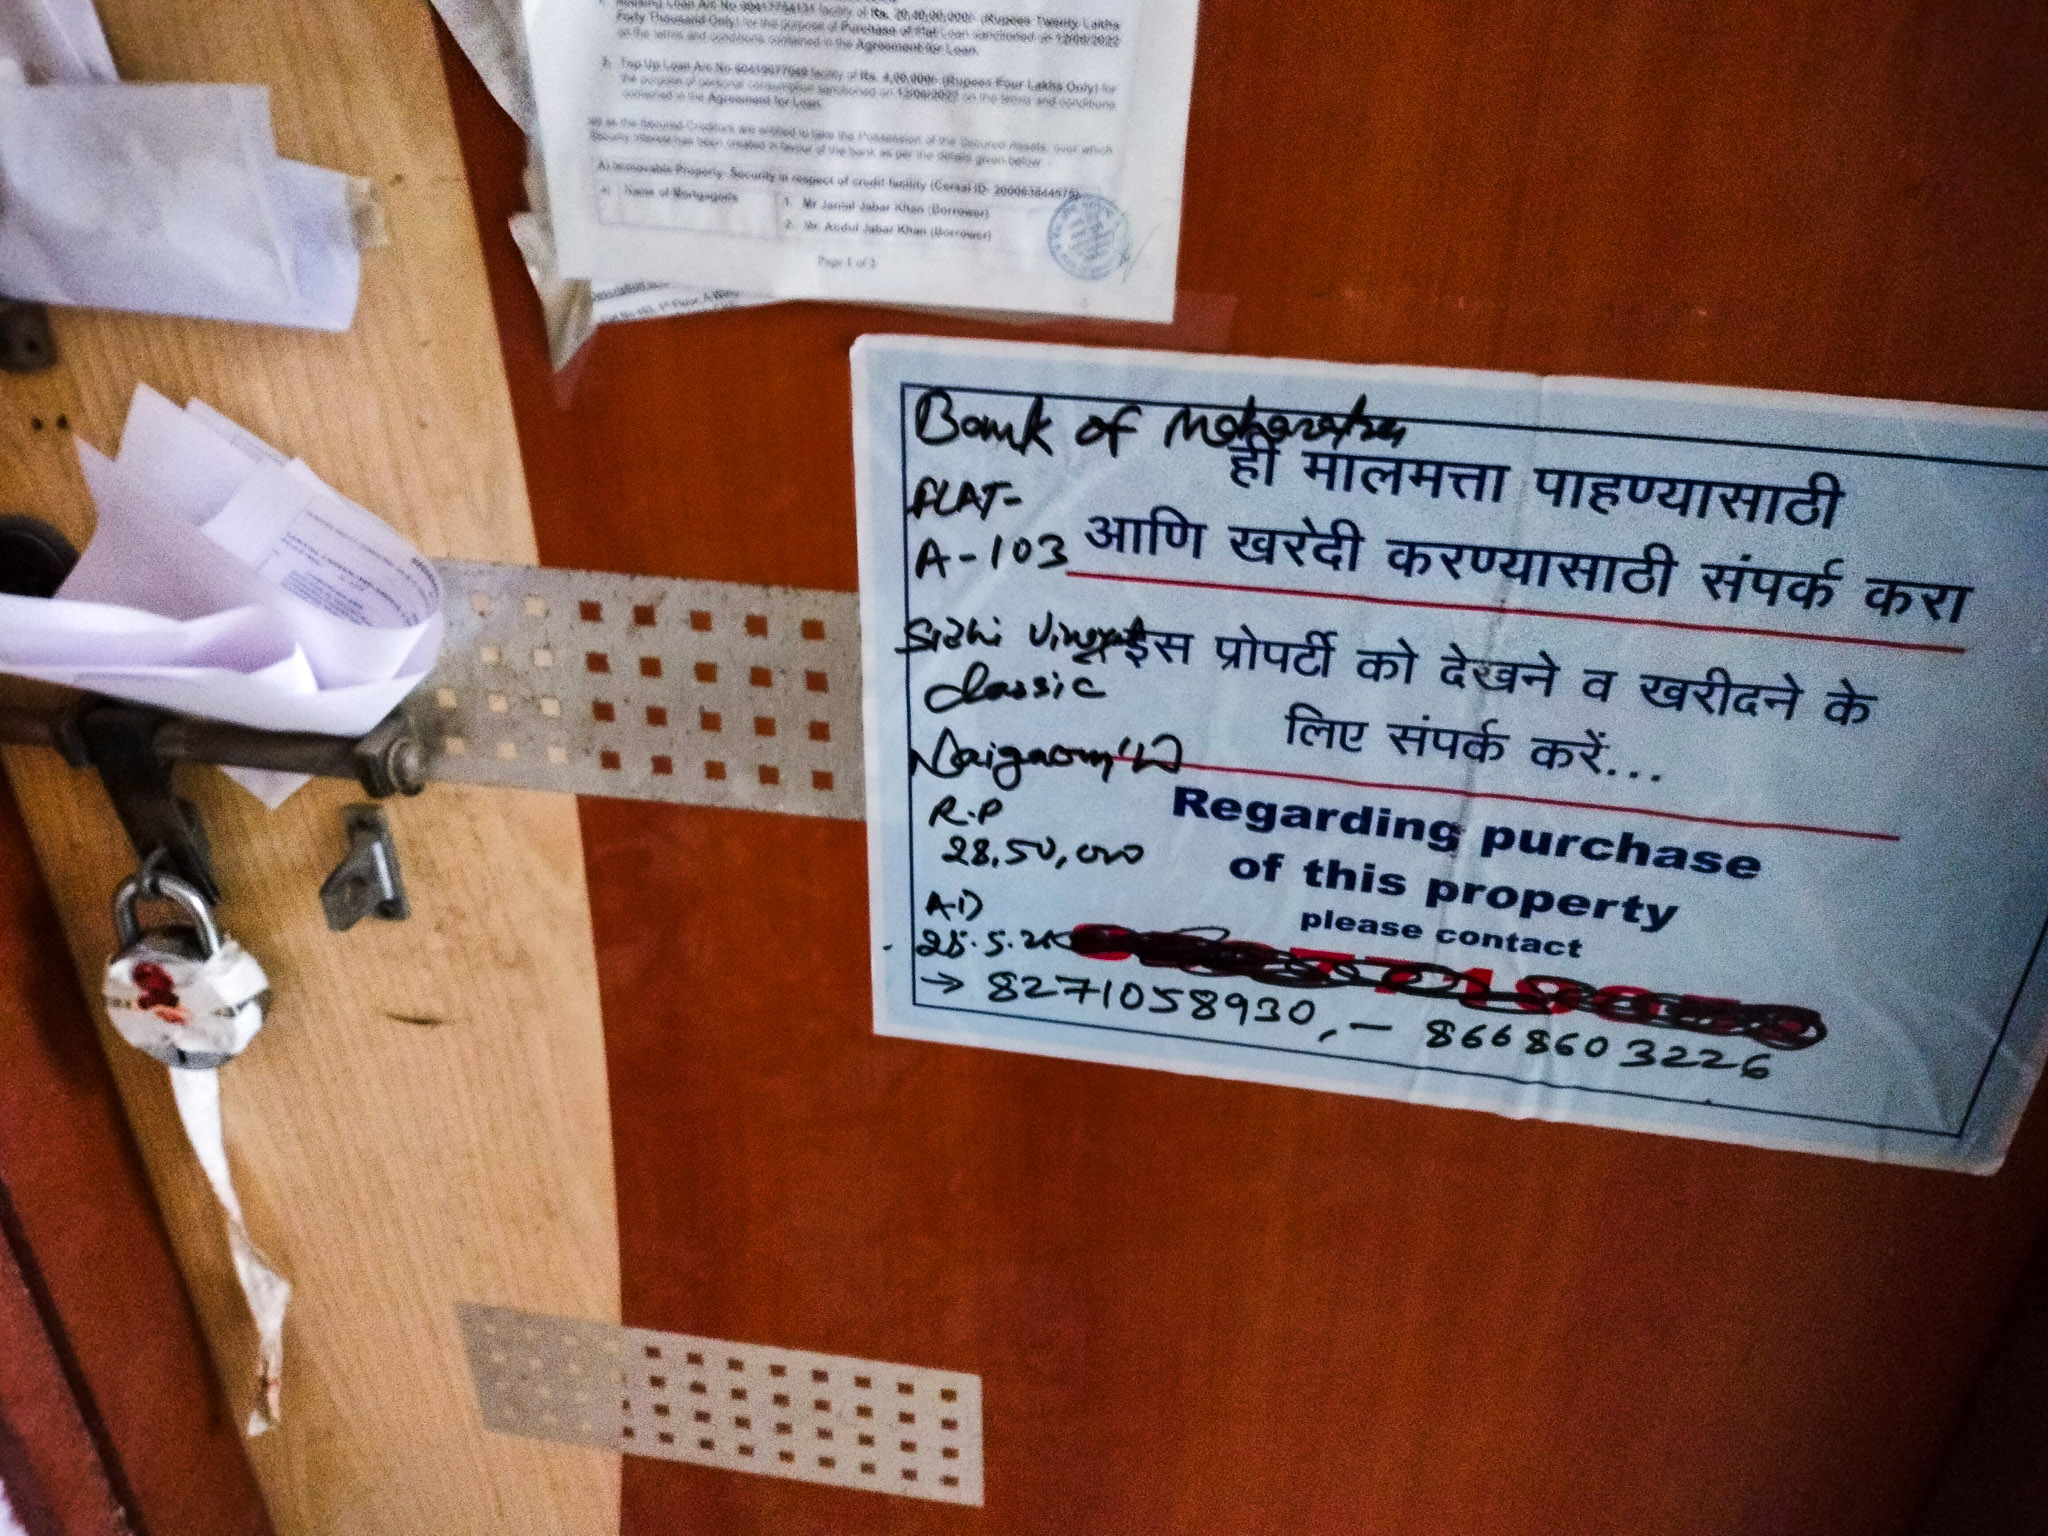 Housing Loan A/c No 60417754131 facility of Rs. 20,40,000/- (Rupees Twenty Lakhs
Forty Thousand Only) for the purpose of Purchase of Flat Loan sanctioned on 12/06/2022
on the terms and conditions contained in the Agreement for Loan.
2. Top Up Loan A/c No 60419077049 facility of Rs. 4,00,000/- (Rupees Four Lakhs Only) for
the purpose of personal consumption sanctioned on 12/06/2022 on the terms and conditions
contained in the Agreement for Loan.
as the Secured Creditors are entitled to take the Possession of the Secured Assets, over which
Security Interest has been created in favour of the bank as per the details given below
A) Immovable Property- Security in respect of credit facility (Cersai ID- 200063844575)
Name of Mortgagors
1. Mr Jamal Jabar Khan (Borrower)
2. Mr. Abdul Jabar Khan (Borrower)
Page 1 of 2
Bank of Maharatra
FLAT-
A-103
Sidhi Vinayak
classic
Naigaon (W)
R.P
28,50,000
A.D
ही मालमत्ता पाहण्यासाठी
आणि खरेदी करण्यासाठी संपर्क करा
इस प्रोपर्टी को देखने व खरीदने के
लिए संपर्क करें...
Regarding purchase
of this property
please contact
→ 8271058930, – 8668603226